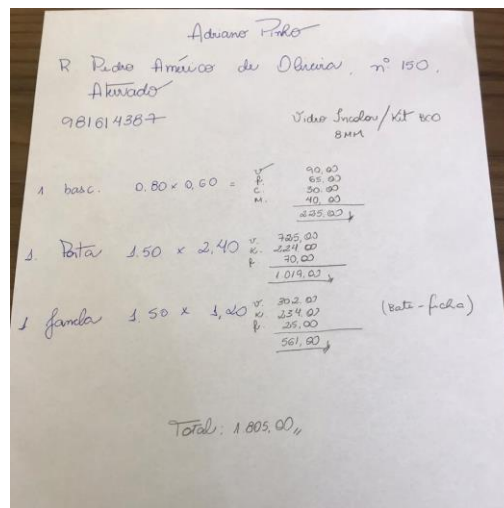 Adriano Pinho
R Pedro Américo de Oliveira, nº 150,
Aterrado
981614387
Vidro Incolor/Kit BCO
8MM
1 basc. 0.80 x 0,60 =
V. 90,00
F. 65,00
C. 30.00
M. 40,00
225,00
1. Porta 1.50 x 2,40
V. 725,00
K. 224 00
F. 70,00
1.019,00
1 Janela 1.50 x 1,20
V. 302.00
K. 234.00
F. 25,00
561,00
(Bate-ficha)
Total: 1.805,00,,